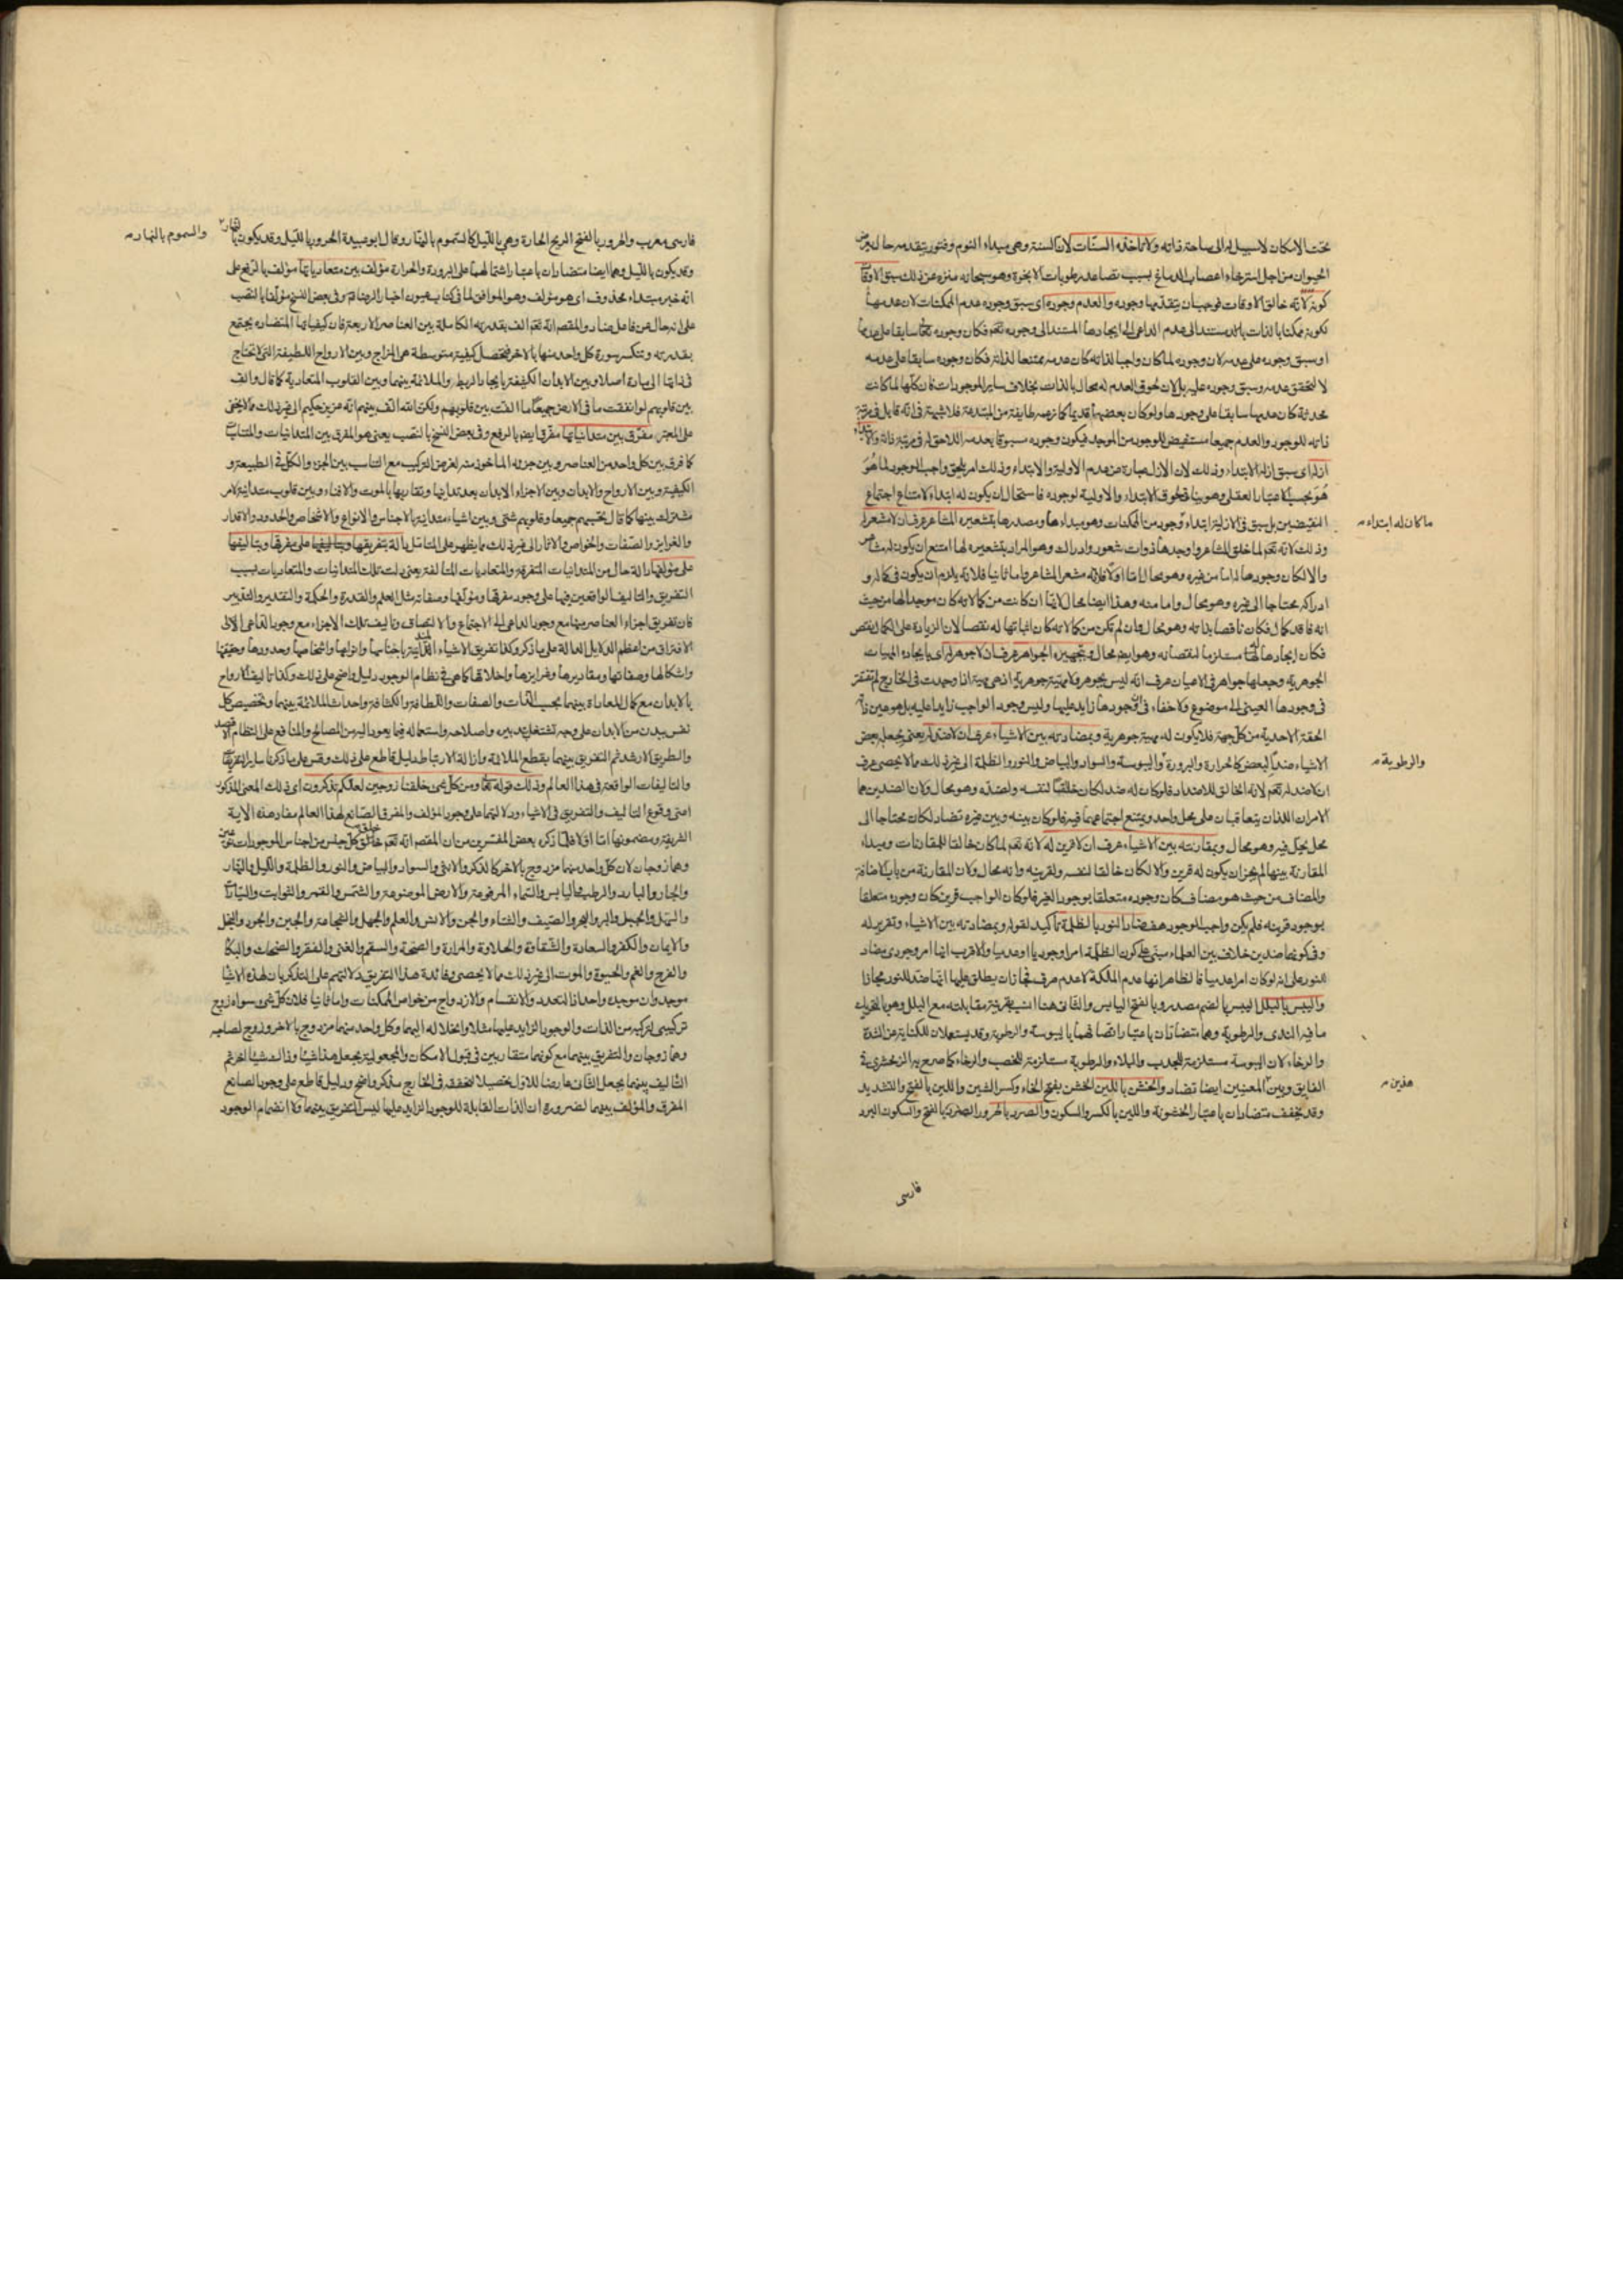 تحت الامكان لا سبيل له الى ساحة ذاته ولا تاخذه السنات لان السنة وهى مبداء النوم وفتور يتقدمه حال يعرض
الحيوان من اجل استرخاء اعصاب الدماغ بسبب تصاعد رطوبات الابخرة وهو سبحانه منزه عن ذلك سبق الاوقات
كونه لانه خالق الاوقات فوجب ان يتقدمها وجوده والعدم وجوده اى سبق وجوده عدم الممكنات لان عدمها
لكونه ممكنا بالذات يستند الى عدم الداعى له الى ايجادها المستند الى وجوده تعم فكان وجوده تعالى سابقا على عدمها
او سبق وجوده على عدمه لان وجوده لما كان واجبا لذاته كان عدمه ممتنعا لذاته فكان وجوده سابقا على عدمه
لا لتحقق عدمه وسبق وجوده عليه بل لان لحوق العدم له محال بالذات بخلاف ساير الموجودات فان كلها لما كانت
محدثة كان عدمها سابقا على وجودها ولو كان بعضها قديما كما زعمه طايفة من المبتدعة فلا شبهة فى انه قابل فى مرتبة
ذاته للوجود والعدم جميعا مستفيض للوجود من الموجد فيكون وجوده مسبوقا بعدمه اللاحق له فى مرتبة ذاته والابتداء
ازله اى سبق ازله الابتداء وذلك لان الازل عبارة عن عدم الاولية والابتداء وذلك امر يلحق واجب الوجود لما هو
هو بحسب الاعتبار العقلى وهو ينافى لحوق الابتداء والاولية لوجوده فاستحال ان يكون له ابتداء لامتناع اجتماع
النقيضين بل سبق فى الازلية ابتداء وجود من الممكنات وهو مبداءها ومصدرها بتشعيره المشاعر عرف ان لا مشعر له
ما كان له ابتداء
وذلك لانه تعم لما خلق المشاعر واوجدها ذوات شعور وادراك وهو المراد بتشعيره لها امتنع ان يكون له مشاعر
والا لكان وجودها له اما من غيره وهو محال اما اولا فلانه مشعر المشاعر واما ثانيا فلانه يلزم ان يكون فى كماله و
ادراكه محتاجا الى غيره وهو محال واما منه وهذا ايضا محال لانها ان كانت من كمالاته كان موجدا لها من حيث
انه فاقد كمال فكان ناقصا بذاته وهو محال وان لم تكن من كمالاته كان اثباتها له نقصا لان الزيادة على الكمال نقص
فكان ايجادها له مستلزما لنقصانه وهو ايضا محال وبتجهيره الجواهر عرف ان لا جوهر له اى بايجاده المهيات
الجوهرية وجعلها جواهر فى الاعيان عرف انه ليس بجوهر ولا مهية جوهرية اذ هى مهية اذا وجدت فى الخارج لم تفتقر
فى وجودها العينى الى موضوع ولا خفاء فى ان وجودها زايد عليها وليس وجود الواجب زايدا عليه بل هو عين ذاته
الحقة الاحدية من كل جهة فلا يكون له مهية جوهرية وبمضادته بين الاشياء عرف ان لا ضد له يعنى بجعل بعض
الاشياء ضدا لبعض كالحرارة والبرودة واليبوسة والسواد والبياض والنور والظلمة الى غير ذلك مما لا يحصى عرف
والرطوبة
ان لا ضد له تعم لانه الخالق للاضداد فلو كان له ضد لكان خالقا لنفسه ولضده وهو محال ولان الضدين هما
الامران اللذان يتعاقبان على محل واحد ويمتنع اجتماعهما فيه فلو كان بينه وبين غيره تضاد لكان محتاجا الى
محل يحل فيه وهو محال وبمقارنته بين الاشياء عرف ان لا قرين له لانه تعم لما كان خالقا للمقارنات ومبداء
المقارنة بينها لم يجز ان يكون له قرين والا لكان خالقا لنفسه ولقرينه وانه محال ولان المقارنة من باب الاضافة
والمضاف من حيث هو مضاف كان وجوده متعلقا بوجود الغير فلو كان الواجب قرين كان وجوده متعلقا
بوجود قرينه فلم يكن واجب الوجود هف ضاد النور بالظلمة تاكيد لقوله وبمضادته بين الاشياء وتقرير له
وفى كونهما ضدين خلاف بين العلماء مبنى على كون الظلمة امرا وجوديا او عدميا والاقرب انها امر وجودى مضاد
للنور على انه لو كان امرا عدميا فالظاهر انها عدم الملكة لا عدم صرف فجاز ان يطلق عليها انها ضد للنور مجازا
واليبس بالبلل اليبس بالضم مصدر وبالفتح اليابس والثانى هنا انسب بقرينة مقابلته مع البلل وهو بالتحريك
ما فيه الندى والرطوبة وهما متضادان باعتبار اتصافهما باليبوسة والرطوبة وقد يستعملان للكناية عن الشدة
والرخاء لان اليبوسة مستلزمة للجدب والبلاء والرطوبة مستلزمة للخصب والرخاء كما صرح به الزمخشرى فى
الفايق وبين المعنيين ايضا تضاد والخشن باللين الخشن بفتح الخاء وكسر الشين واللين بالفتح والتشديد
هذين
وقد يخفف متضادان باعتبار الخشونة واللين بالكسر والسكون والصرد بالحرور الصرد بالفتح والسكون البرد
فارسى
فارسى معرب والحرور بالفتح الريح الحارة وهى بالليل كالسموم بالنهار وقال ابو عبيدة الحرور بالليل وقد يكون بالنهار
والسموم بالنهار
وقد يكون بالليل وهما ايضا متضادان باعتبار اشتمالهما على البرودة والحرارة مؤلف بين متعادياتها مؤلف بالرفع على
انه خبر مبتداء محذوف اى هو مؤلف وهو الموافق لما فى كتاب عيون اخبار الرضا ع وفى بعض النسخ مؤلفا بالنصب
على انه حال عن فاعل ضاد والمقصم انه تعم الف بقدرته الكاملة بين العناصر الاربعة فان كيفياتها المتضاده يجتمع
بقدرته وتنكسر سورة كل واحد منها بالاخر فتحصل كيفية متوسطة هى المزاج وبين الارواح اللطيفة التى لا تحتاج
فى ذاتها الى مادة اصلا وبين الابدان الكثيفة بايجاد الربط والملائمة بينهما وبين القلوب المتعادية كما قال والف
بين قلوبهم لو انفقت ما فى الارض جميعا ما الفت بين قلوبهم ولكن الله الف بينهم انه عزيز حكيم الى غير ذلك مما لا يخفى
مفرق بين متدانياتها مفرق ايضا بالرفع وفى بعض النسخ بالنصب يعنى هو المفرق بين المتدانيات
كما فرق بين كل واحد من العناصر وبين جزوه الماخوذ منه لغرض التركيب مع التناسب بين الجزء والكل فى الطبيعة و
الكيفية وبين الارواح والابدان وبين الاجزاء الابدان بعد تدانيها وتقاربها بالموت والافناء وبين قلوب متدانية لامر
مشترك بينها كما قال تحسبهم جميعا وقلوبهم شتى وبين اشياء متدانية بالاجناس والانواع والاشخاص والحدود والاقدار
والغرايز والصفات والخواص والاثار الى غير ذلك مما يظهر على المتامل دالة بتفريقها على مفرقها وبتاليفها
على مؤلفها دالة حال من المتدانيات المتفرقة والمتعاديات المتالفة يعنى دلت تلك المتدانيات والمتعاديات بسبب
التفريق والتاليف الواقعين فيها على وجود مفرقها ومؤلفها وصفاته مثل العلم والقدرة والحكمة والتقدير والتدبير
فان تفريق اجزاء العناصر منها مع وجود الداعى له الى الاجتماع والالتصاق وتاليف تلك الاجزاء مع وجود الداعى الى
الافتراق من اعظم الدلايل الدالة على ما ذكر وكذا تفريق الاشياء المتدانية باجناسها وانواعها واشخاصها وحدودها وحقيقتها
واشكالها وصفاتها ومقاديرها وغرايزها واخلاقها كما هى فى نظام الوجود دليل واضح على ذلك وكذا تاليف الارواح
بالابدان مع كمال المعاداة بينهما بحسب الذات والصفات واللطافة والكثافة واحداث الملائمة بينهما وتخصيص كل
نفس ببدن من الابدان على وجه تشتغل بتدبيره واصلاحه واستعماله فيما يعود اليه من المصالح والمنافع على النظام
والطريق الارشد ثم التفريق بينهما بقطع الملائمة وازالة الارتباط دليل قاطع على ذلك وقس على ما ذكرنا ساير التفريقات
والتاليفات الواقعة فى هذا العالم وذلك قوله تعالى ومن كل شىء خلقنا زوجين لعلكم تذكرون اى ذلك المعنى المذكور
اعنى وقوع التاليف والتفريق فى الاشياء ودلالتهما على وجود المؤلف والمفرق الصانع لهذا العالم مفاد هذه الاية
الشريفة ومضمونها اما اولا فلما ذكره بعض المفسرين من ان المقصم انه تعم خلق كل جنس من اجناس الموجودات نوعين
وهما زوجان لان كل واحد منهما مزدوج بالاخر كالذكر والانثى والسواد والبياض والنور والظلمة والليل والنهار
والحار والبارد والرطب واليابس والسماء المرفوعة والارض الموضوعة والشمس والقمر والثوابت والسيارات
والسهل والجبل والبر والبحر والصيف والشتاء والجن والانس والعلم والجهل والشجاعة والجبن والجود والبخل
والايمان والكفر والسعادة والشقاوة والحلاوة والمرارة والصحة والسقم والغنى والفقر والضحك والبكاء
والفرح والغم والحيوة والموت الى غير ذلك مما لا يحصى وفائدة هذا التفريق دلالتهم على التذكر بان لهذه الاشياء
موجد وان موجده واحد اذ التعدد والانقسام والازدواج من خواص الممكنات واما ثانيا فلان كل شىء سواه زوج
تركيبى لتركبه من الذات والوجود الزايد عليها مثلا وانحلاله اليهما وكل واحد منهما مزدوج بالاخر وزوج لصاحبه
وهما زوجان والتفريق بينهما مع كونهما متقاربين فى قبول الامكان والمجعولية بجعل هذا شيئا وذاك شيئا اخر ثم
التاليف بينهما بجعل الثانى عارضا للاول تحصيلا لتحققه فى الخارج مذكر واضح ودليل قاطع على وجود الصانع
المفرق والمؤلف بينهما لضرورة ان الذات القابلة للوجود الزايد عليها ليس التفريق بينهما ولا انضمام الوجود